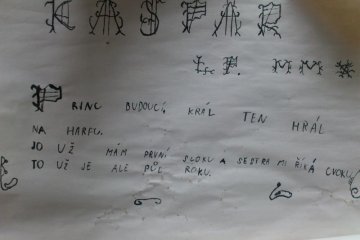 KAŠPAR
PRINC BUDOUCÍ, KRÁL TEN HRÁL
NA HARFU.
JO UŽ MÁM PRVNÍ SLOKU A SESTRA MI ŘÍKÁ CVOKU
TO UŽ JE ALE PŮL ROKU.